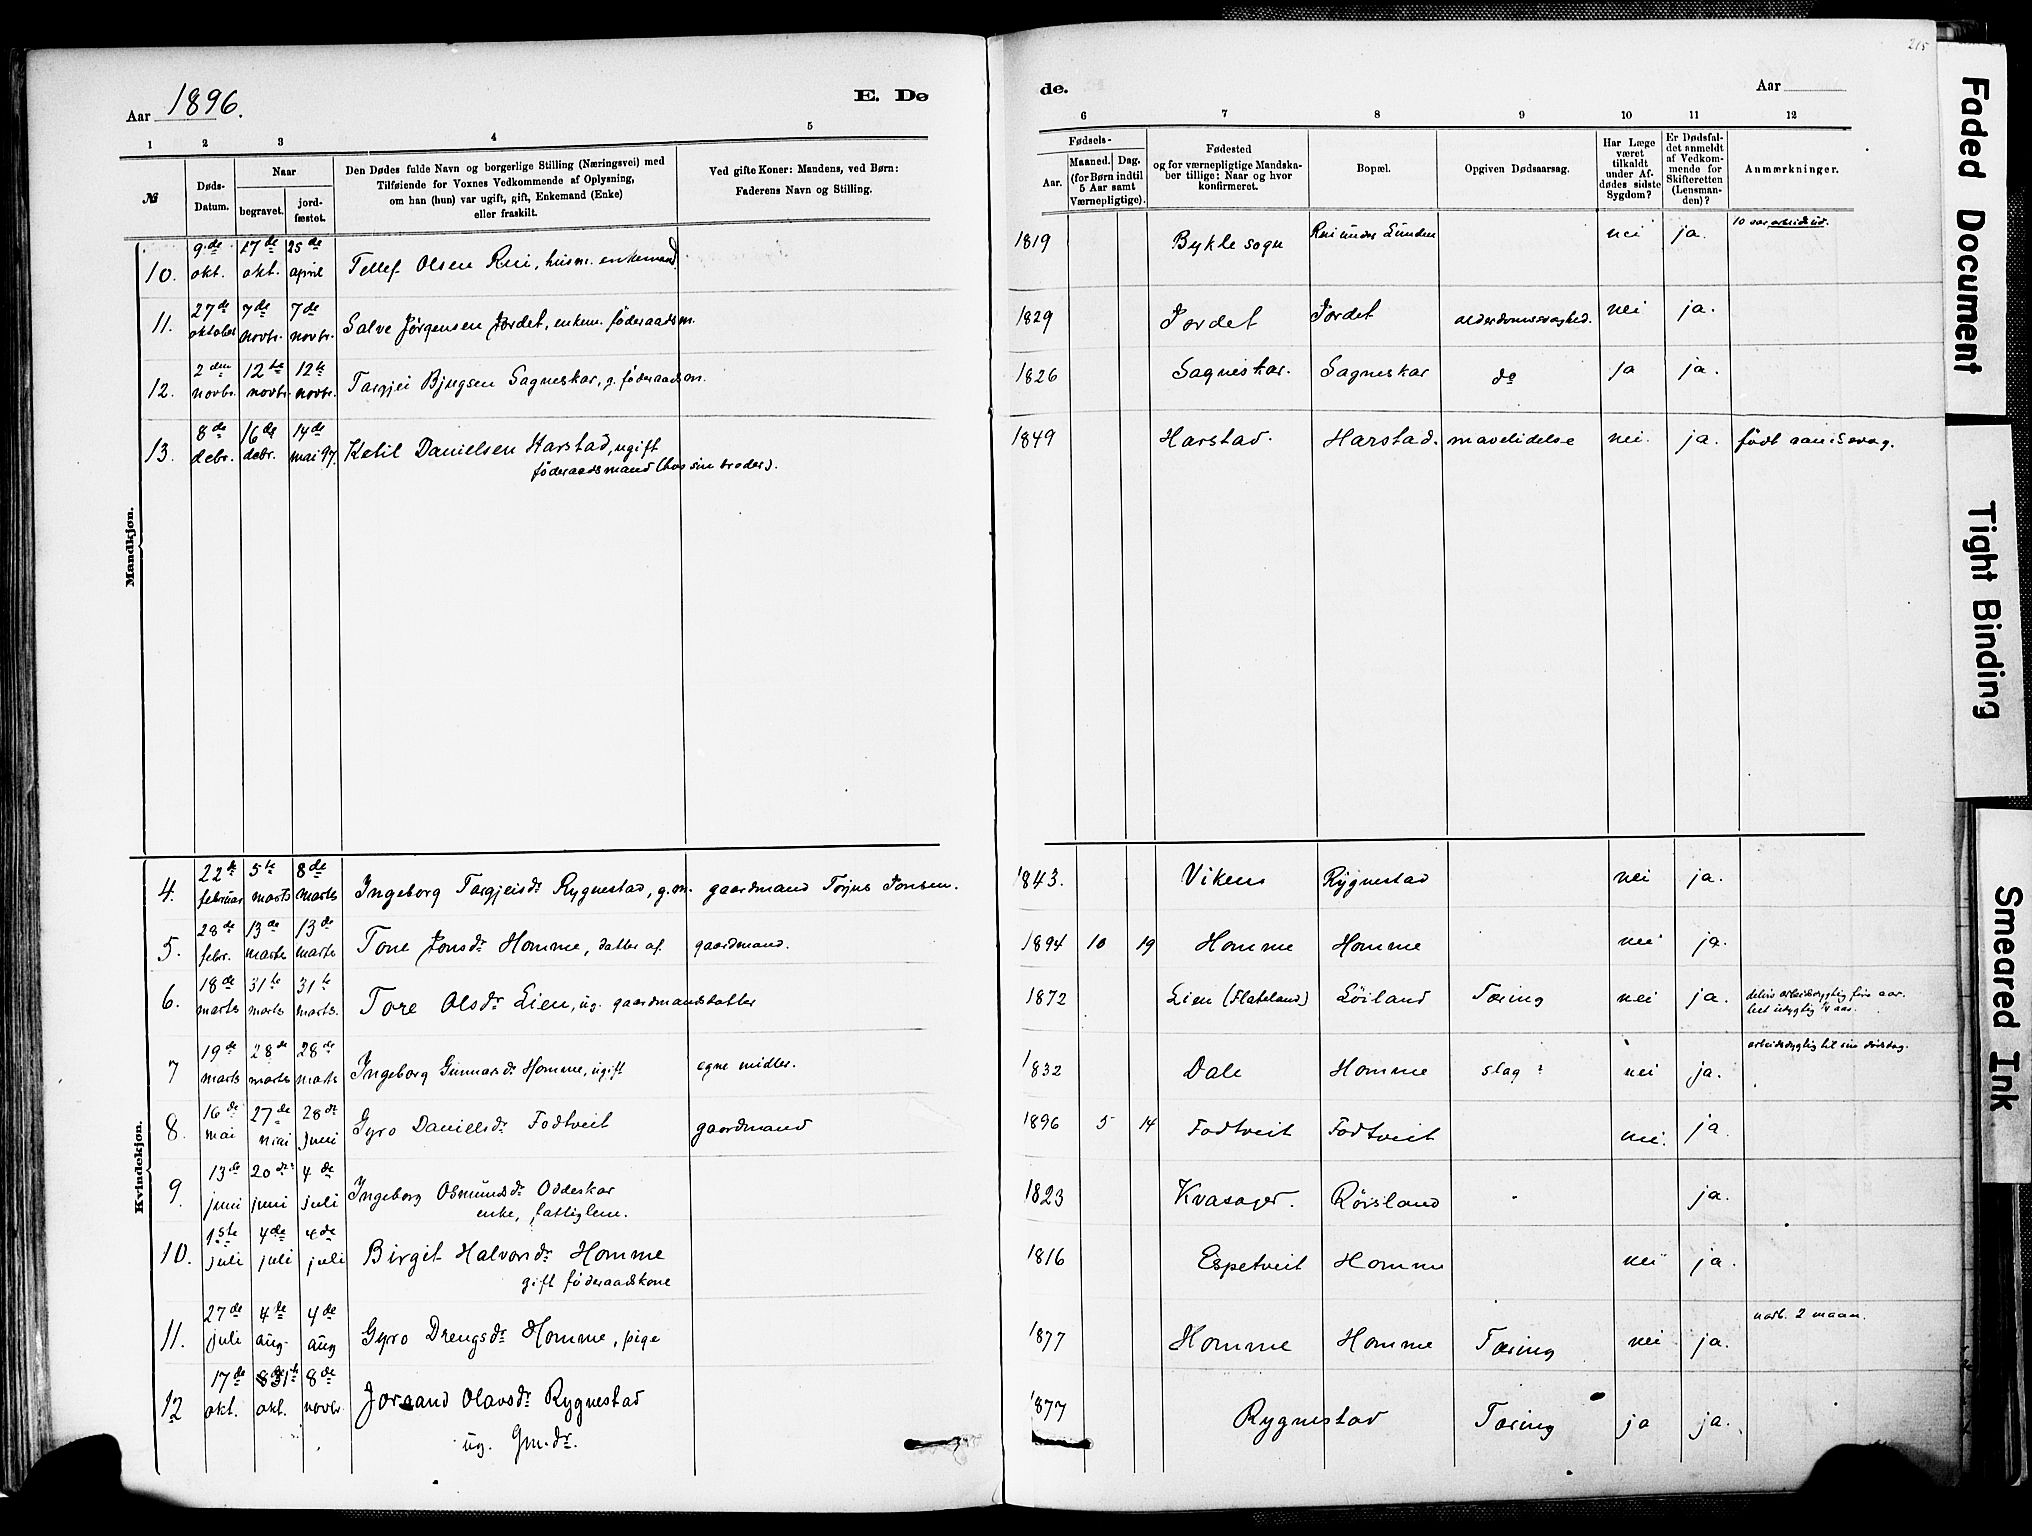 215
Aar 1896.
E. Dø
de.
Aar
1 2 3 4 5 6 7 8 9 10 11 12
№
Døds-Datum.
Naar
begravet.
jord-fæstet.
Den Dødes fulde Navn og borgerlige Stilling (Næringsvei) med
Tilføiende for Voxnes Vedkommende af Oplysning,
om han (hun) var ugift, gift, Enkemand (Enke)
eller fraskilt.
Ved gifte Koner: Mandens, ved Børn:
Faderens Navn og Stilling.
Fødsels-
Aar.
Maaned. Dag.
(for Børn indtil
5 Aar samt
Værnepligtige).
Fødested
og for værnepligtige Mandska-
ber tillige: Naar og hvor
konfirmeret.
Bopæl.
Opgiven Dødsaarsag.
Har Læge
været
tilkaldt
under Af-
dødes sidste
Sygdom?
Er Dødsfal-
det anmeldt
af Vedkom-
mende for
Skifteretten
(Lensman-
den)?
Anmærkninger.
Mandkjøn.
10. 9de okt. 17de okt. 25de april Tellef Olsen Rui, husm. enkemand. 1819 Bykle sogn Rui under Lunden nei ja. 10 aar arbeidsud.
11. 27de oktober 7de novbr. 7de novbr. Salve Jørgensen Jordet, enkem. føderaadsm. 1829 Jordet Jordet alderdomssvaghed. nei ja.
12. 2den novbr. 12te novbr. 12te novbr. Targjei Bjugsen Sagneskar, g. føderaadsm. 1826 Sagneskar. Sagneskar do ja ja.
13. 8de debr. 16de debr. 14de mai 97. Ketil Danielsen Harstad, ugift 1849 Harstad. Harstad. mavelidelse nei. ja. født aandssvag.
føderaadsmand (hos sin broder).
Kvindekjøn.
4. 22de februar 5te marts 8de marts Ingeborg Targjeisdr Rygnestad, g.m. gaardmand Torjus Jonsen. 1843. Viken Rygnestad nei ja.
5. 28de febr. 13de marts 13de marts Tone Jonsdr Homme, datter af gaardmand. 1894 10 19 Homme Homme nei ja.
6. 18de marts 31te marts 31te marts. Tore Olsdr Lien, ug. gaardmandsdatter 1872 Lien (Flateland) Løiland Tæring nei ja. delvis arbeidsdygtig fire aar.
helt udygtig 1/4 aar.
7 19de marts 28de marts 28de marts Ingeborg Gunnarsdr Homme, ugift egne midler. 1832 Dale Homme slag? nei ja. arbeidsdygtig til sin dødsdag.
8. 16de mai 27de mai 28de juni Gyro Danielsdr Fodtveit gaardmand 1896 5 14 Fodtveit Fodtveit nei. ja.
9. 13de juni 20de juni 4de juli Ingeborg Osmundsdr Oddeskar 1823 Kvasager. Røisland ja.
enke, fattiglem.
10. 1ste juli 4de juli 4de juli Birgit Halvorsdr Homme 1816 Espetveit Homme nei ja.
gift føderaadskone
11. 27de juli 4de aug. 4de aug Gyro Drengsdr Homme, pige 1877 Homme Homme Tæring nei ja. uarb. 2 maan.
12 17de okt. 31te okt. 8de novbr. Joraand Olavsdr Rygnestad 1877 Rygnestad Tæring ja ja.
ug. Gm.dr.
Faded Document
Tight Binding
Smeared Ink